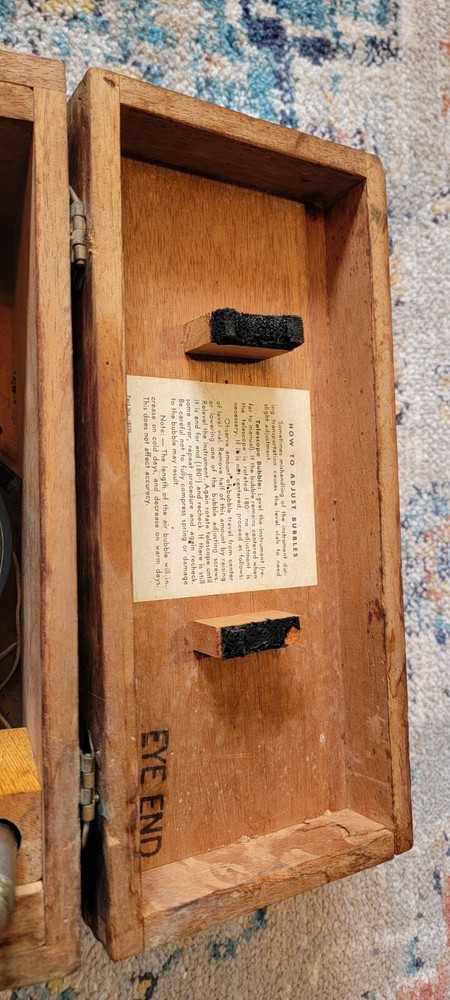 HOW TO ADJUST BUBBLES
Sometimes mishandling of the instrument dur-
ing transportation causes the level vials to need
slight adjustment.
Telescope Bubbles: Level the instrument (re-
fer to manual). If the bubble remains centered when
the telescope is rotated 180° no adjustment is
necessary. If it is not centered, proceed as follows:
Observe amount of bubble travel from center
of level vial. Remove half of this amount by raising
or lowering one of the bubble adjusting screws.
Relevel the instrument. Again rotate telescope until
it is end for end (180°) and recheck. If there is still
some error, repeat procedure and again recheck.
Be careful not to fully compress spring or damage
to the bubble may result.
Note: — The length of the air bubble will in-
crease on cold days, and decrease on warm days.
This does not affect accuracy.
EYE END